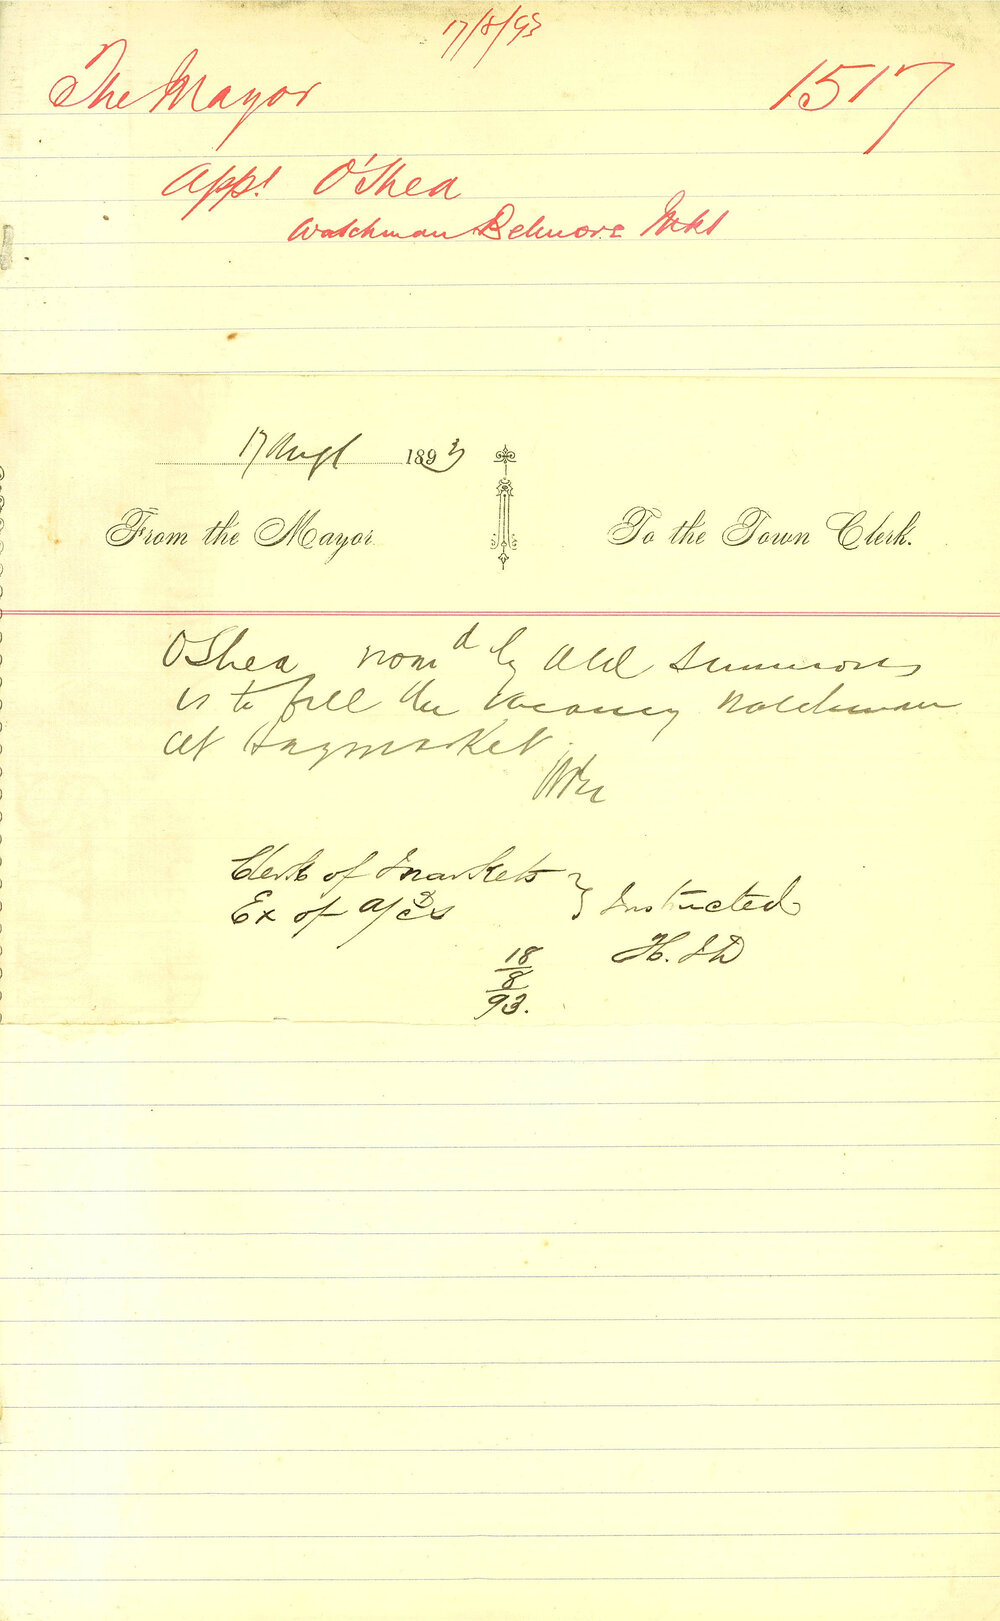 17/8/93
The Mayor 1517
Appt O'Shea
Watchman Belmore Mkt
17 Augt 1893
From the Mayor To the Town Clerk.
O'Shea nomd by Ald
is to fill the vacancy Watchman
at Haymarket
Clerk of Markets } Instructed
Ex of a/cs
18
8
93.